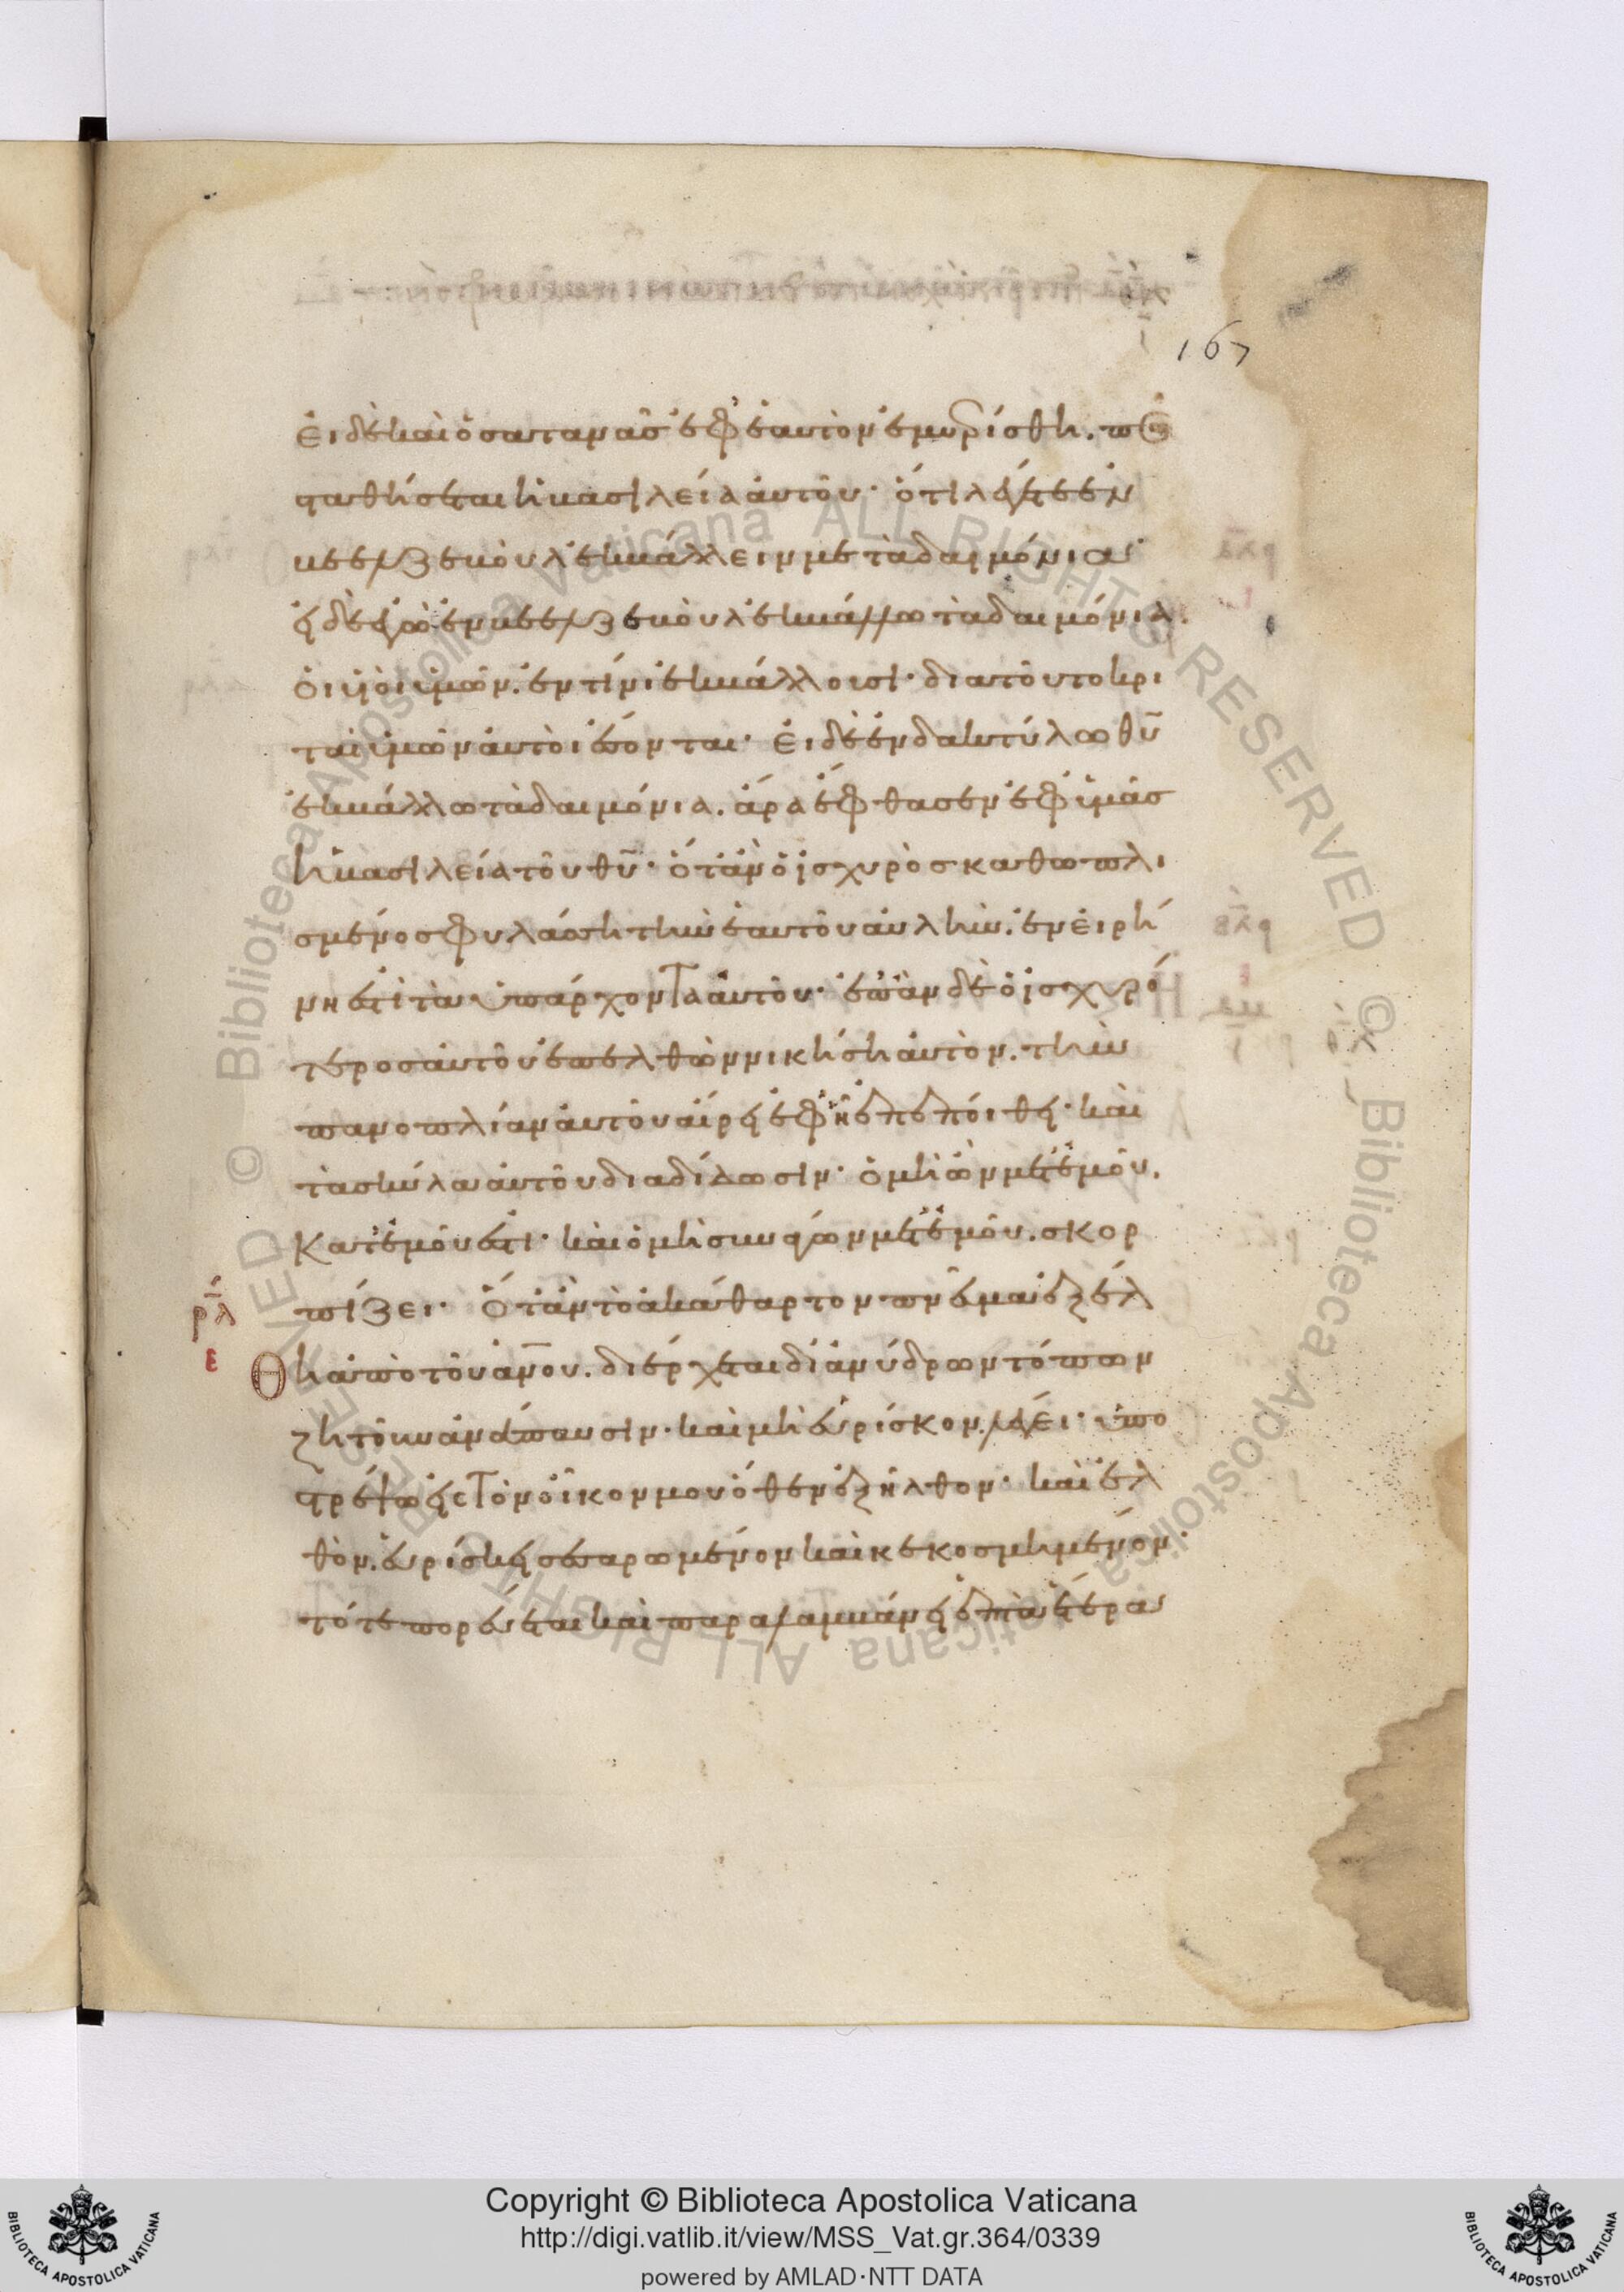 167
εἰ δὲ καὶ ὁ σατανᾶσ ἐφ' ἑαυτὸν ἐμερίσθη. πῶς
σταθήσεται ἡ βασιλεία αὐτοῦ· ὅτι λέγετε ἐν
βεελζεβοὺλ ἐκβάλλειν με τὰ δαιμόνια·
εἰ δὲ ἐγὼ ἐν βεελζεβοὺλ ἐκβάλλω τὰ δαιμόνια.
οἱ υἱοὶ ὑμῶν. ἐν τίνι ἐκβάλλουσι· διατοῦτο κρι
ταὶ ὑμῶν αὐτοὶ ἔσονται· εἰ δὲ ἐν δακτύλω θυ
ἐκβάλλω τὰ δαιμόνια. ἄρα ἔφθασεν ἐφ' ὑμᾶσ
ἡ βασιλεία τοῦ θυ· ὅταν ὁ ἰσχυρὸσ καθωπλι
σμένοσ φυλάσση τὴν ἑαυτοῦ αὐλήν. ἐν εἰρή
νη ἐστὶ τὰ ὑπάρχοντα αὐτοῦ· ἐπὰν δὲ ὁ ἰσχυρό
τεροσ αὐτοῦ ἐπελθὼν νικήση αὐτόν. τὴν
πανοπλίαν αὐτοῦ αἴρει ἐφ' ἧ ἐπεποίθει· καὶ
τὰ σκύλα αὐτοῦ διαδίδωσιν· ὁ μὴ ὢν μετ' ἐμοῦ.
κατ' ἐμοῦ ἐστι· καὶ ὁ μὴ συνάγων μετ' ἐμοῦ. σκορ
πίζει· ὅταν τὸ ἀκάθαρτον πνεῦμα ἐξέλ
ρλ
ε
θη ἀπὸ τοῦ ανου. διέρχεται δι' ἀνύδρων τόπων
ζητοῦν ἀνάπαυσιν· καὶ μὴ εὑρίσκον. λέγει· ὑπο
στρέψω εἰς τὸν οἶκον μου ὅθεν ἐξῆλθον· καὶ ἐλ
θὸν. εὑρίσκει σεσαρωμένον καὶ κεκοσμημένον·
τότε πορεύεται καὶ παραλαμβάνει ἑπτὰ ἕτερα
Copyright © Biblioteca Apostolica Vaticana
http://digi.vatlib.it/view/MSS_Vat.gr.364/0339
powered by AMLAD·NTT DATA
BIBLIOTECA APOSTOLICA VATICANA
BIBLIOTECA APOSTOLICA VATICANA
© Biblioteca Apostolica Vaticana ALL RIGHTS RESERVED
© Biblioteca Apostolica Vaticana ALL RIGHTS RESERVED